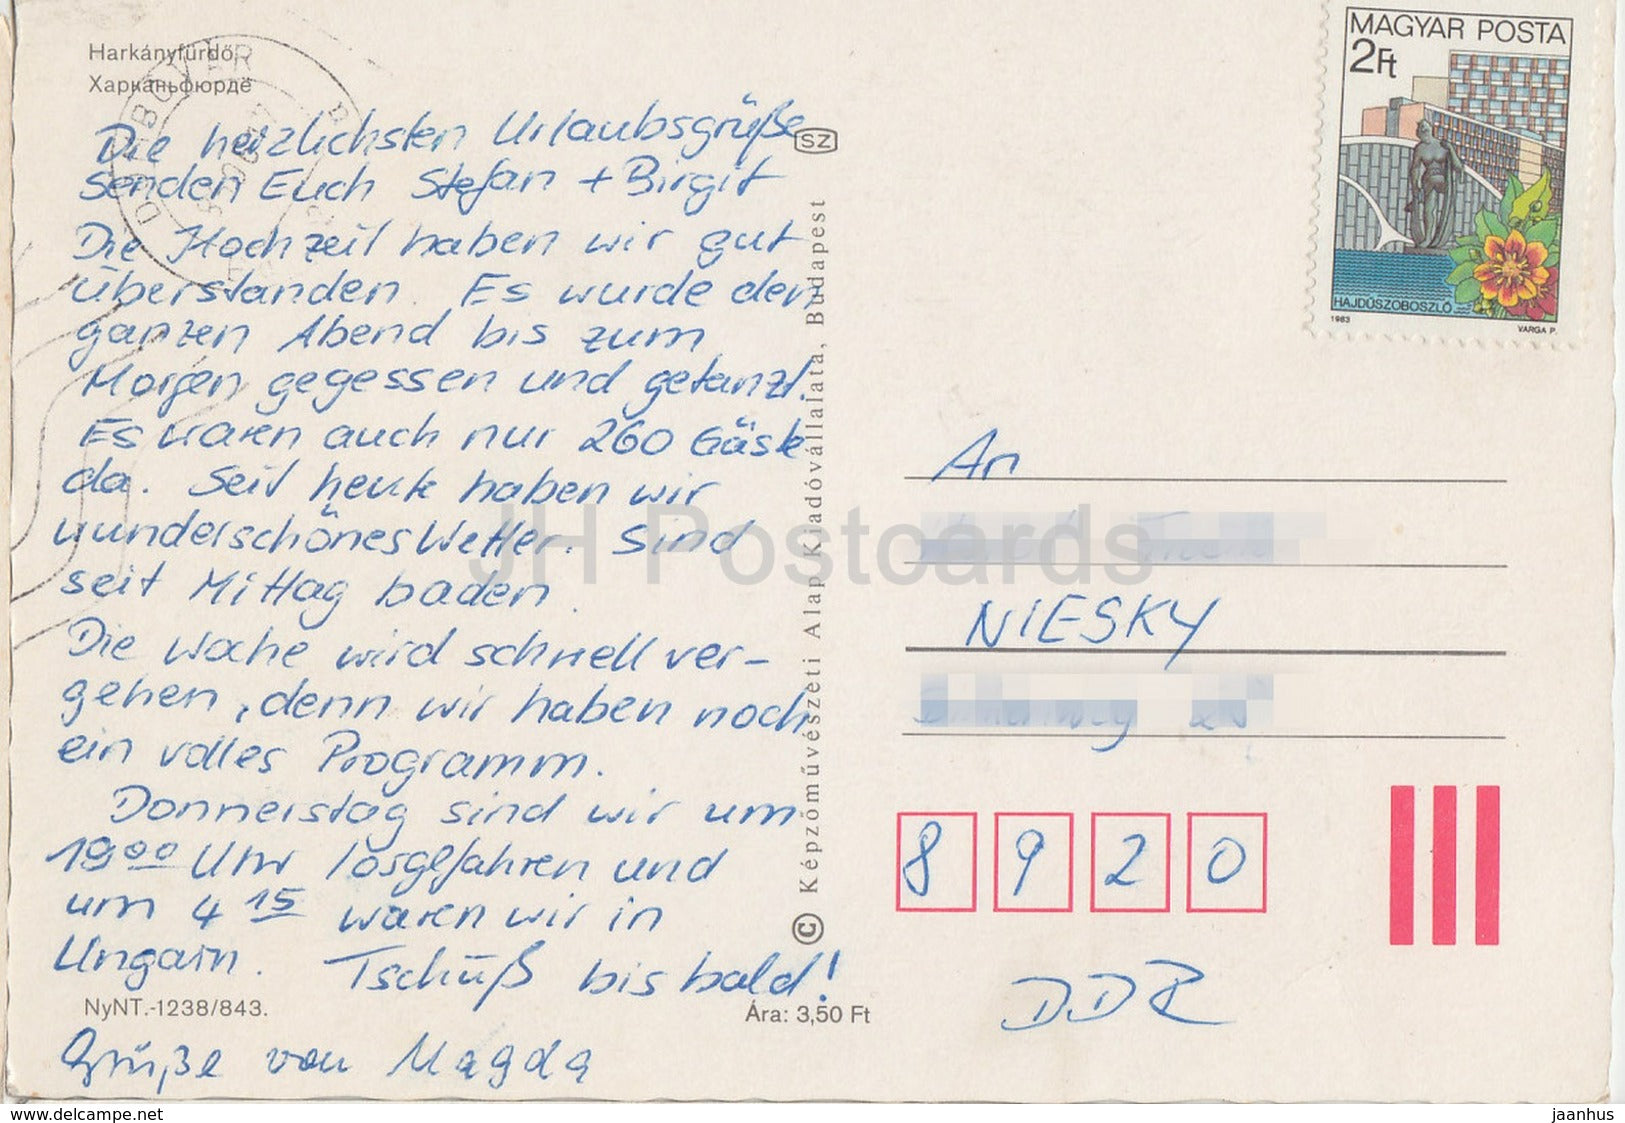 Harkányfürdő
Харканьфюрдё
Die herzlichsten Urlaubsgrüße
senden Euch Stefan + Birgit
Die Hochzeit haben wir gut
überstanden. Es wurde den
ganzen Abend bis zum
Morgen gegessen und getanzt.
Es waren auch nur 260 Gäste
da. Seit heute haben wir
wunderschönes Wetter. Sind
seit Mittag baden.
Die Woche wird schnell ver-
gehen, denn wir haben noch
ein volles Programm.
Donnerstag sind wir um
19⁰⁰ Uhr losgefahren und
um 4¹⁵ waren wir in
Ungarn. Tschüß bis bald!
NyNT.-1238/843.
Ára: 3,50 Ft
Grüße von Magda
SZ
© Képzőművészeti Alap Kiadóvállalata, Budapest
MAGYAR POSTA
2Ft
HAJDÚSZOBOSZLÓ
1983
VARGA P.
An
NIESKY
8 9 2 0
DDR
JH Postcards
www.delcampe.net
jaanhus